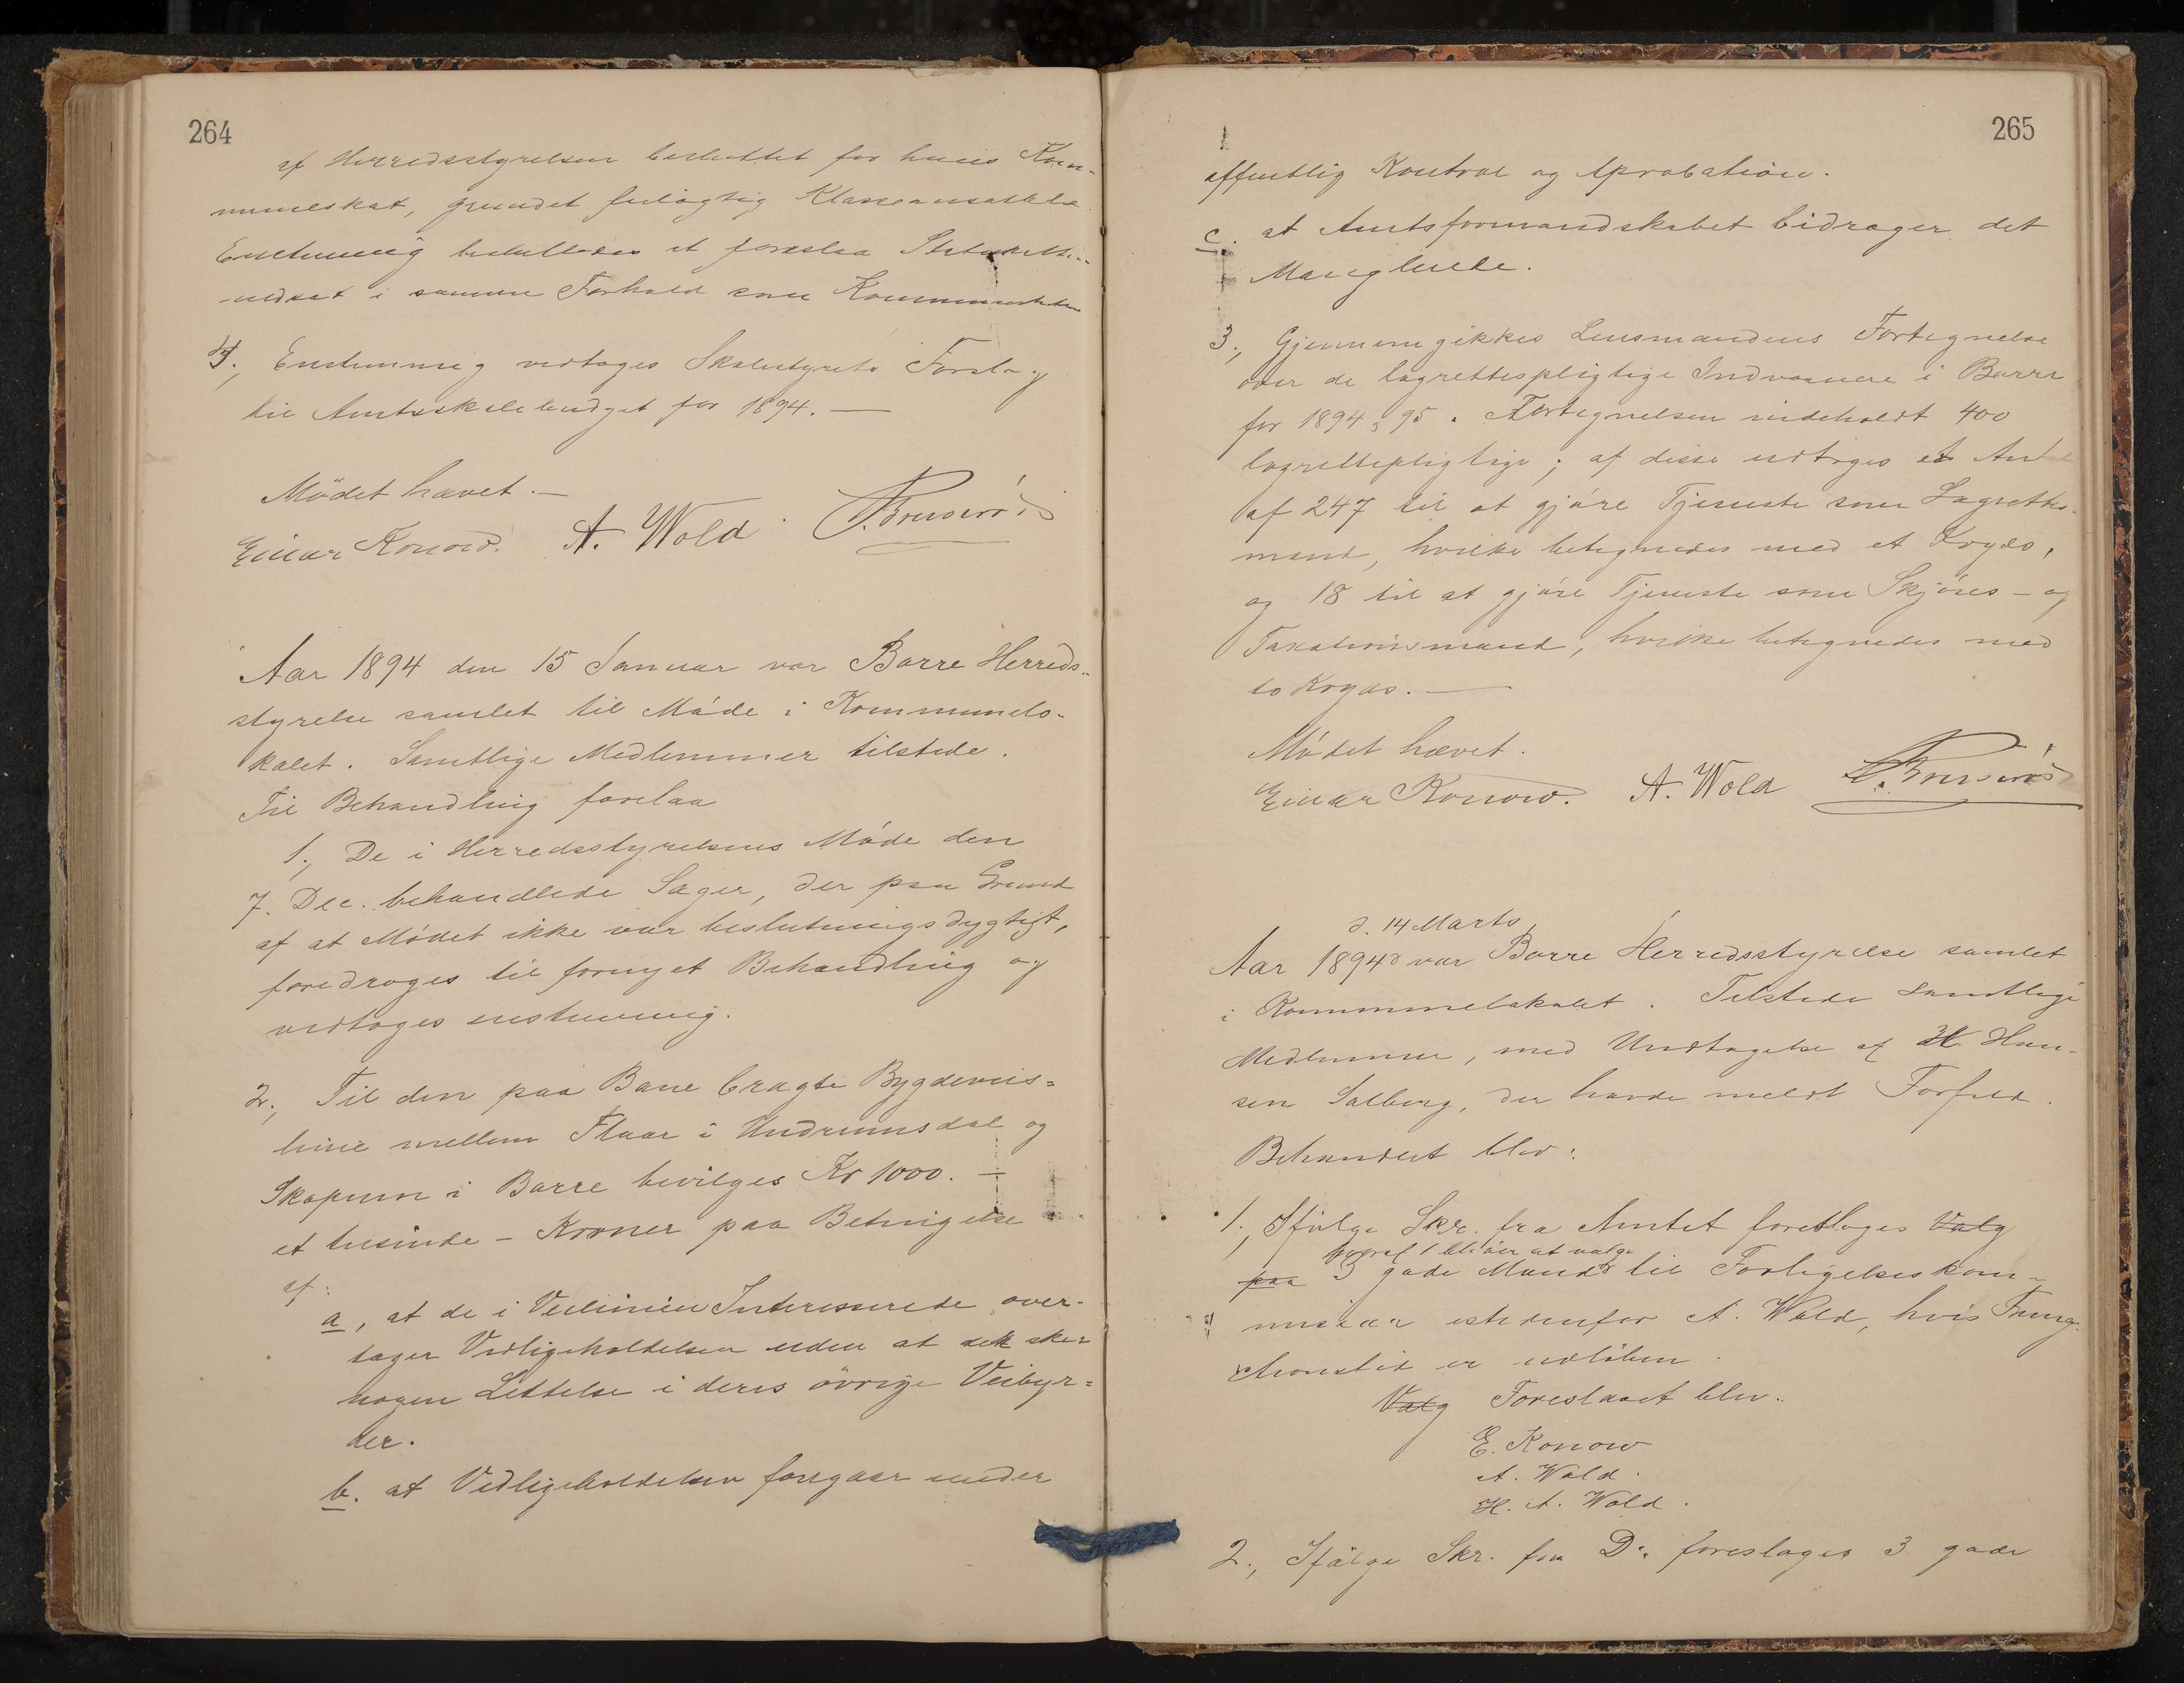 264
af Herredsstyrelsen besluttet for hans Kom-
muneskat, grundet feilagtig Klasseansættelse
Enstemmig besluttedes at foreslaa
nedsat i samme Forhold som Kommuneskatten
4., Enstemmig vedtoges Skolestyrets Forslag
til Amtsskolebudget for 1894. —
Mödet hævet. —
Einar Konow. A. Wold.
Aar 1894 den 15 Januar var Borre Herreds-
styrelse samlet til Möde i Kommunelo-
kalet. Samtlige Medlemmer tilstede.
Til Behandling forelaa
1., De i Herredsstyrelsens Möde den
7. Dec. behandlede Sager, der paa Grund
af at Mödet ikke var beslutningsdygtigt,
foredroges til fornyet Behandling og
vedtoges enstemmig.
2., Til den paa Bane bragte Bygdeveis=
linie mellem Flaar i Undrumsdal og
Skopum i Borre bevilges Kr 1000. —
et tusinde – Kroner paa Betingelse
af:
a, at de i Veilinien Interesserede over-
tager Vedligeholdelsen uden at det sker
nogen Lettelse i deres övrige Veibyr=
der.
b. at Vedligeholdelsen foregaar under
265
offentlig Kontrol og Aprobation.
c. at Amtsformandskabet bidrager det
Manglende.
3., Gjennemgikkes Lensmandens Fortegnelse
over de lagrettespligtige Indvaanere i Borre
for 1894 & 95. Fortegnelsen indeholdt 400
lagrettepligtige; af disse udtoges et Antal
af 247 til at gjöre Tjeneste som Lagrettes-
mænd, hvilke betegnedes med et Kryds,
og 18 til at gjöre Tjeneste som Skjöns- og
Taxationsmænd, hvilke betegnedes med
to Kryds. —
Mödet hævet.
Einar Konow. A. Wold
d. 14 Marts
Aar 1894 var Borre Herredsstyrelse samlet
i Kommunelokalet. Tilstede samtlige
Medlemmer, med Undtagelse af H. Han-
sen Solberg, der havde meldt Forfald.
Behandlet blev:
1., Ifölge Skr. fra Amtet foretloges Valg
hvoraf 1 bliver at vælge
paa 3 gode Mænd til Forligelseskom-
missær istedenfor A. Wold, hvis Fung-
tionstid er udlöben.
Valg Foreslaaet blev:
E. Konow
A. Wold.
H. A. Wold.
2., Ifölge Skr. fra Do foresloges 3 gode